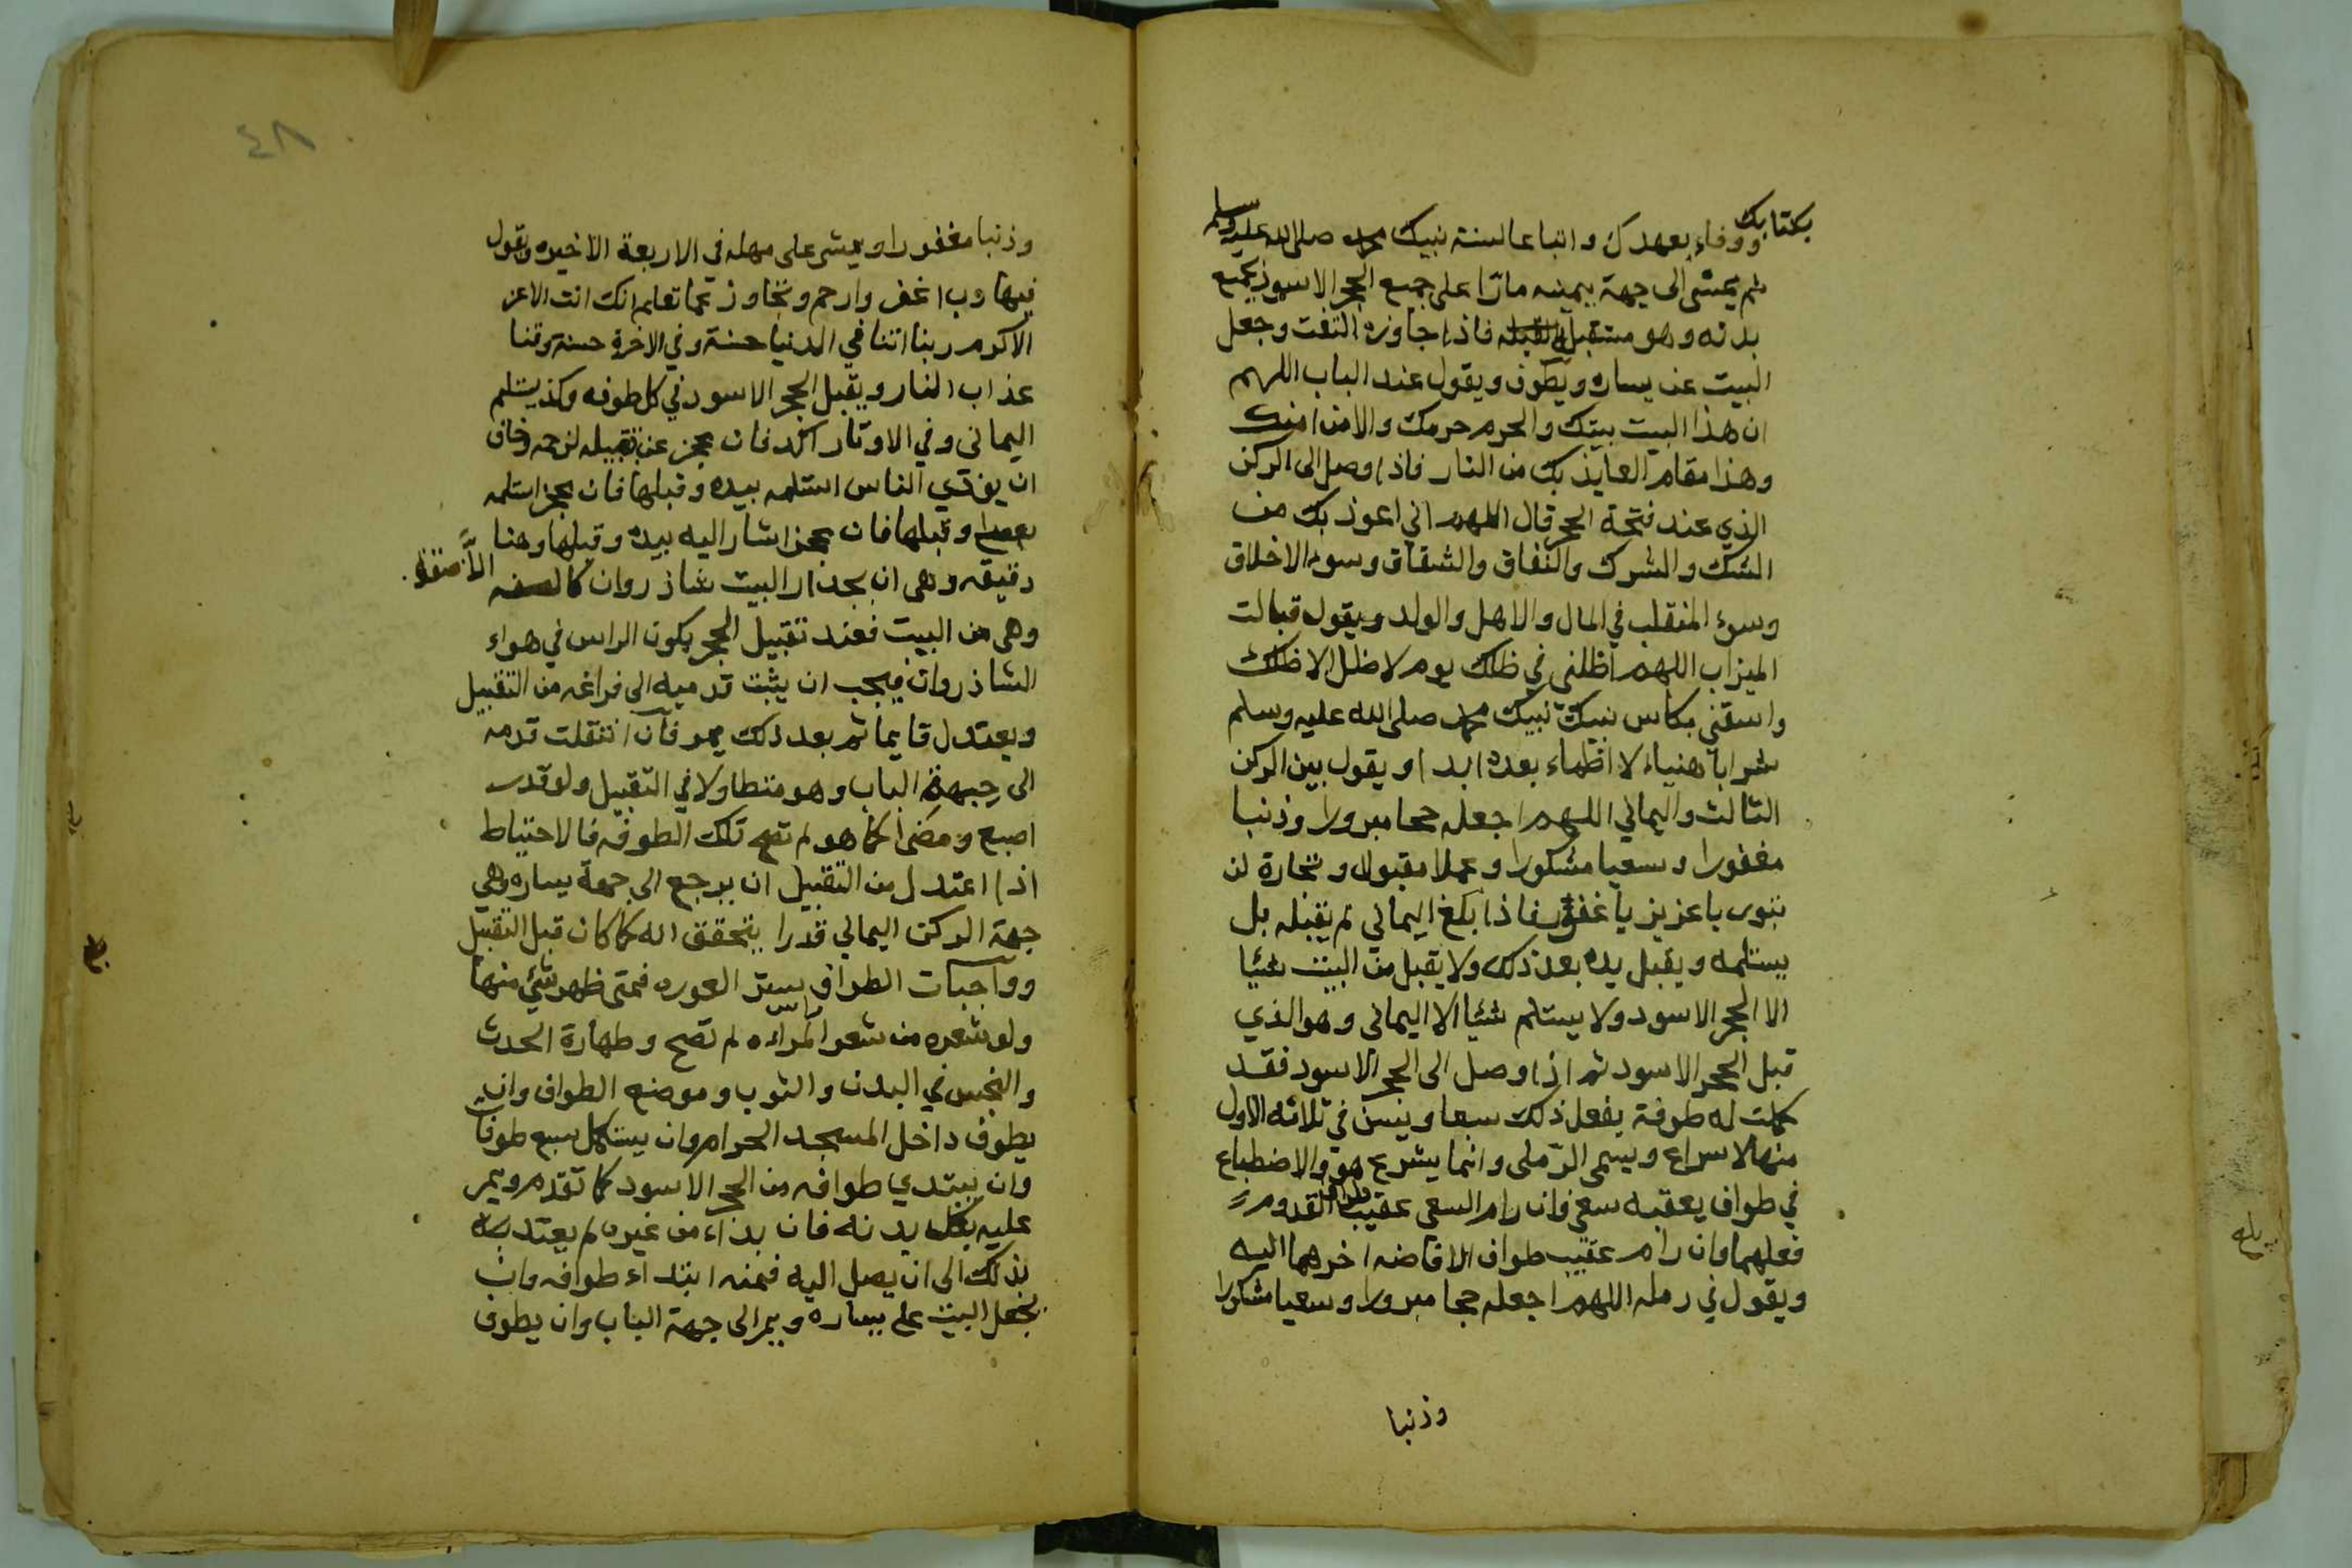 بكتابك ووفاء بعهدك واتباعا لسنة نبيك محمد صلى الله عليه وسلم
ثم يمشى الى جهة يمينه مارّا على جميع الحجر الاسود بجميع
بدنه وهو مستقبل القبله فاذا جاوزه التفت وجعل
البيت عن يساره ويطوف ويقول عند الباب اللهم
ان هذا البيت بيتك والحرم حرمك والامن امنك
وهذا مقام العايذ بك من النار فاذا وصل الى الركن
الذي عند فتحة الحجر قال اللهم اني اعوذ بك من
الشك والشرك والنفاق والشقاق وسوء الاخلاق
وسوء المنقلب في المال والاهل والولد ويقول قبالت
الميزاب اللهم اظلني في ظلك يوم لا ظل الا ظلك
واسقني بكاس نبيك نبيك محمد صلى الله عليه وسلم
شرابا هنياء لا اظماء بعده ابدا ويقول بين الركن
الثالث واليماني اللهم اجعله حجا مبرورا وذنبا
مغفورا وسعيا مشكورا وعملا مقبولا وتجارة لن
تبور يا عزيز يا غفور فاذا بلغ اليماني لم يقبله بل
يستلمه ويقبل يده بعد ذلك ولا يقبل من البيت شئيا
الا الحجر الاسود ولا يستلم شئيا الا اليماني وهو الذي
قبل الحجر الاسود ثم اذا وصل الى الحجر الاسود فقد
كملت له طوفة يفعل ذلك سبعا ويسن في ثلاثه الاول
منها الاسراع ويسمى الرّملى وانما يشرع هو والاضطباع
في طواف يعقبه سعي فان رام السعى عقيب طواف القدوم
فعلهما وان رام عقيب طواف الافاضه اخرهما اليه
ويقول في رمله اللهم اجعله حجا مبرورا وسعيا مشكورا
وذنبا
٤٨
وذنبا مغفورا ويمشى على مهله في الاربعة الاخيره ويقول
فيها رب اغفر وارحم وتجاوز عما تعلم انك انت الاعز
الاكرم ربنا اتنا في الدنيا حسنة وفي الاخرة حسنة وقنا
عذاب النار ويقبل الحجر الاسود في كل طوفه وكذا يستلم
اليماني وفي الاوتار اكد فان عجز عن تقبيله لزحمه وخاف
ان يوذي الناس استلمه بيده وقبلها فان عجز استلمه
بعصا وقبلها فان عجز اشار اليه بيده وقبلها وهنا
دقيقه وهى ان بجدار البيت شاذروان كالصفه
وهى من البيت فعند تقبيل الحجر يكون الراس في هواء
الشاذروان فيجب ان يثبت قدميه الى فراغه من التقبيل
ويعتدل قايما ثم بعد ذلك يمر فان انتقلت قدمه
الى جهة الباب وهو متطاولا في التقبيل ولو قدر
اصبع ومضى كما هو لم تصح تلك الطوفه فالاحتياط
اذا اعتدل من التقبيل ان يرجع الى جهة يساره وهي
جهة الركن اليماني قدرا يتحقق انه كما كان قبل التقبيل
وواجبات الطواف ستر العوره فمتى ظهر شئ منها
ولو شعره من شعر راس المراءه لم تصح وطهارة الحدث
والنجس في البدن والثوب وموضع الطواف وان
يطوف داخل المسجد الحرام وان يستكمل سبع طوفات
وان يبتدي طوافه من الحجر الاسود كما تقدم ويمر
عليه بكل بدنه فان بداء من غيره لم يعتد به
بذلك الى ان يصل اليه فمنه ابتداء طوافه وان
يجعل البيت على يساره ويمر الى جهة الباب وان يطوف